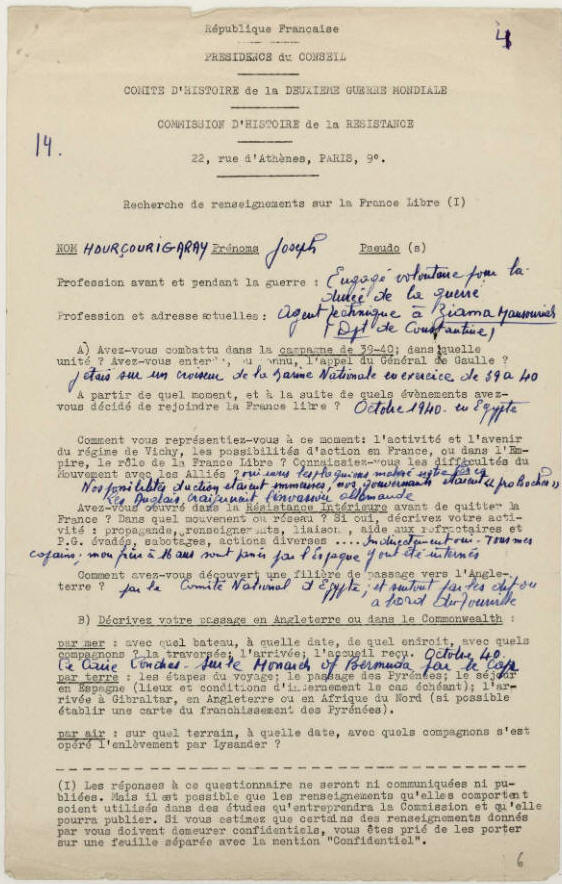 République Française
4
PRESIDENCE du CONSEIL
COMITE D'HISTOIRE de la DEUXIEME GUERRE MONDIALE
COMMISSION D'HISTOIRE de la RESISTANCE
14.
22, rue d'Athènes, PARIS, 9°.
Recherche de renseignements sur la France Libre (I)
NOM HOURÇOURIGARAY Prénoms Joseph Pseudo (s)
Profession avant et pendant la guerre : Engagé volontaire pour la
durée de la guerre
Profession et adresse actuelles : Agent technique à Ziama Mansouriah
(Dpt de Constantine)
A) Avez-vous combattu dans la campagne de 39-40; dans quelle
unité ? Avez-vous entendu, ou connu, l'appel du Général de Gaulle ?
J'étais sur un croiseur de la Marine Nationale en exercice de 39 à 40
A partir de quel moment, et à la suite de quels évènements avez-
vous décidé de rejoindre la France libre ? Octobre 1940. en Egypte
Comment vous représentiez-vous à ce moment: l'activité et l'avenir
du régime de Vichy, les possibilités d'action en France, ou dans l'Em-
pire, le rôle de la France Libre ? Connaissiez-vous les difficultés du
Mouvement avec les Alliés ? oui nous les
Nos possibilités d'action étaient immenses, nos gouvernants étaient "pro Boches"
Les Anglais craignaient l'invasion allemande
Avez-vous œuvré dans la Résistance Intérieure avant de quitter la
France ? Dans quel mouvement ou réseau ? Si oui, décrivez votre acti-
vité : propagande, renseignements, liaison, aide aux réfractaires et
P.G. évadés, sabotages, actions diverses .... Indirectement oui. Tous mes
copains, mon frère à 16 ans sont passés par l'Espagne y ont été internés
Comment avez-vous découvert une filière de passage vers l'Angle-
terre ? par le Comité National d'Egypte, et surtout par les
à bord du Tourville
B) Décrivez votre passage en Angleterre ou dans le Commonwealth :
par mer : avec quel bateau, à quelle date, de quel endroit, avec quels
compagnons ? la traversée; l'arrivée; l'accueil reçu. Octobre 40.
Le Caire Londres - sur le Monarch of Bermuda par le Cap
par terre : les étapes du voyage; le passage des Pyrénées; le séjour
en Espagne (lieux et conditions d'internement le cas échéant); l'ar-
rivée à Gibraltar, en Angleterre ou en Afrique du Nord (si possible
établir une carte du franchissement des Pyrénées).
par air : sur quel terrain, à quelle date, avec quels compagnons s'est
opéré l'enlèvement par Lysander ?
(I) Les réponses à ce questionnaire ne seront ni communiquées ni pu-
bliées. Mais il est possible que les renseignements qu'elles comportent
soient utilisés dans des études qu'entreprendra la Commission et qu'elle
pourra publier. Si vous estimez que certains des renseignements donnés
par vous doivent demeurer confidentiels, vous êtes prié de les porter
sur une feuille séparée avec la mention "Confidentiel".
6